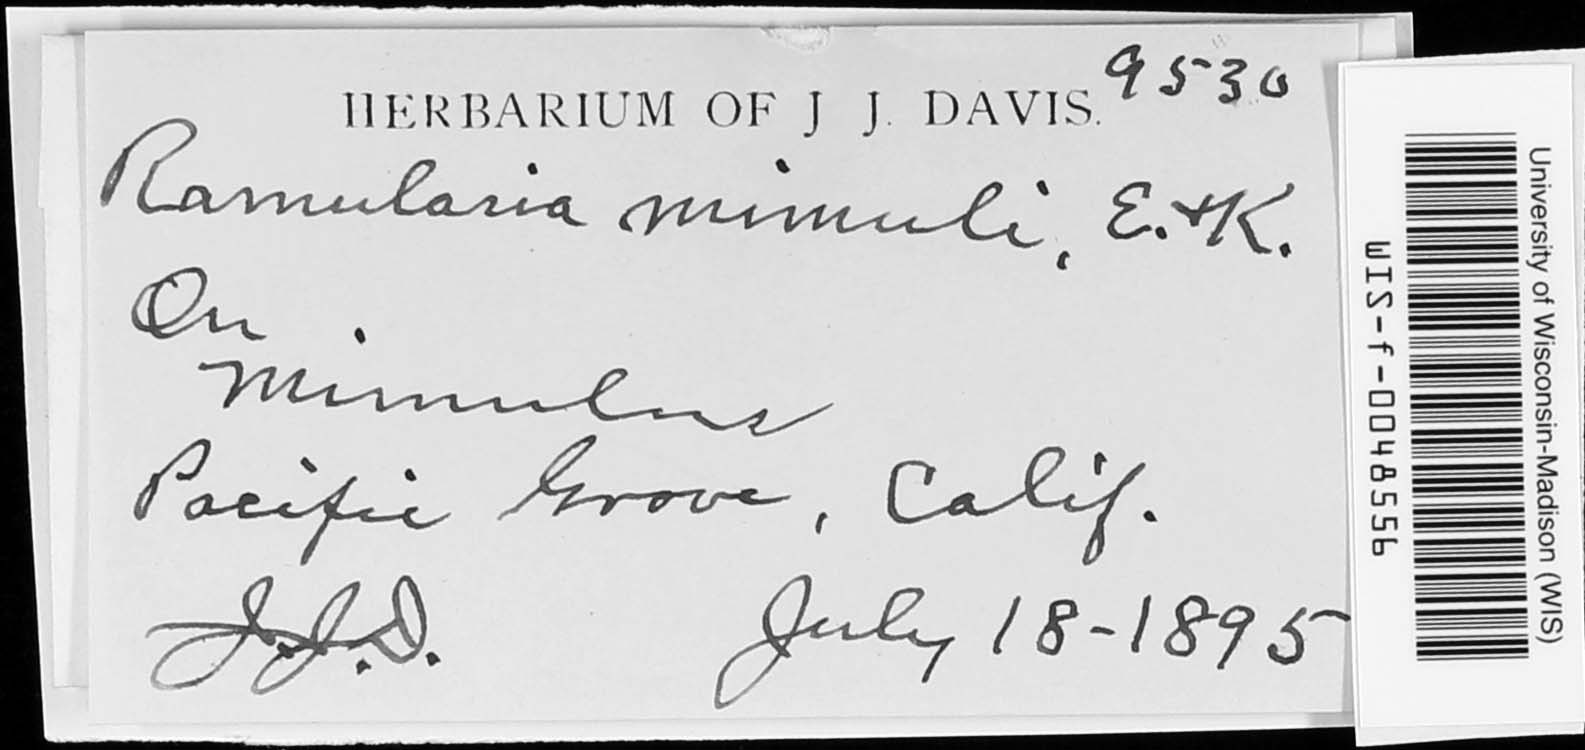 9530
HERBARIUM OF J. J. DAVIS.
Ramularia mimuli, E. & K.
On
Mimulus
Pacific Grove, Calif.
J.J.D. July 18-1895
University of Wisconsin-Madison (WIS)
WIS-f-0048556